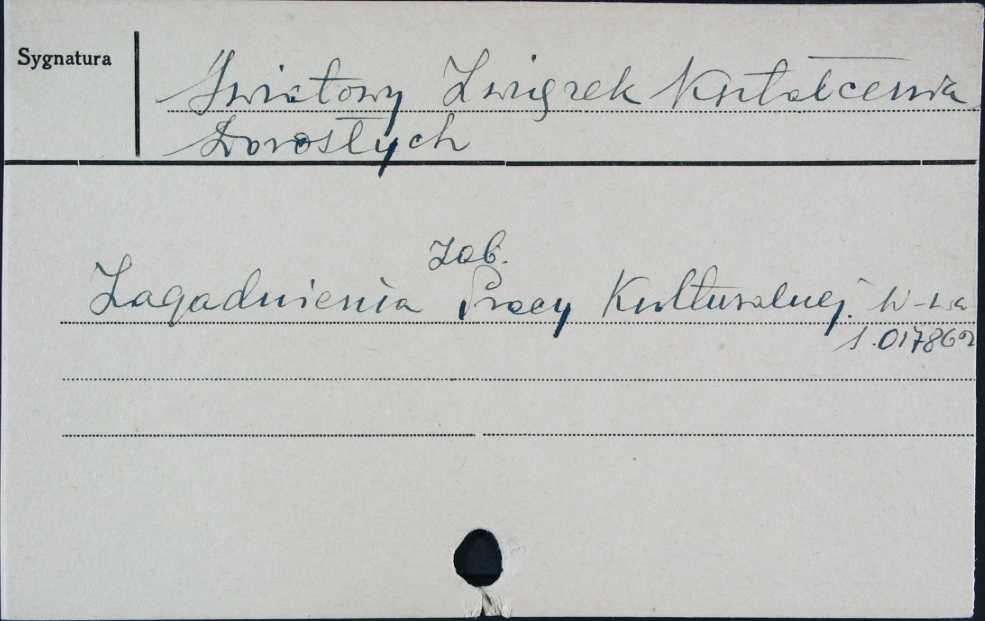 Sygnatura
Światowy Związek Kształcenia
Dorosłych
Zob.
Zagadnienia Pracy Kulturalnej. W-wa
1.017862